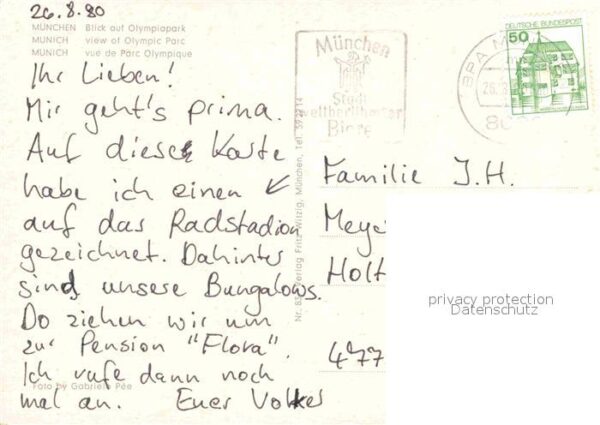 26.8.80
MÜNCHEN Blick auf Olympiapark
MUNICH view of Olympic Parc
MUNICH vue de Parc Olympique
Ihr Lieben!
Mir geht's prima.
Auf dieser Karte
habe ich einen ↙
auf das Radstadion
gezeichnet. Dahinter
sind unsere Bungalows.
Do ziehen wir um
zur Pension "Flora".
Ich rufe dann noch
mal an. Euer Volker
Foto by Gabriele Pée
Verlag Fritz Witzig, München, Tel.
München
Stadt
weltberühmter
Biere
DEUTSCHE BUNDESPOST
50
Familie J.H.
Meye
Holt
477
privacy protection
Datenschutz